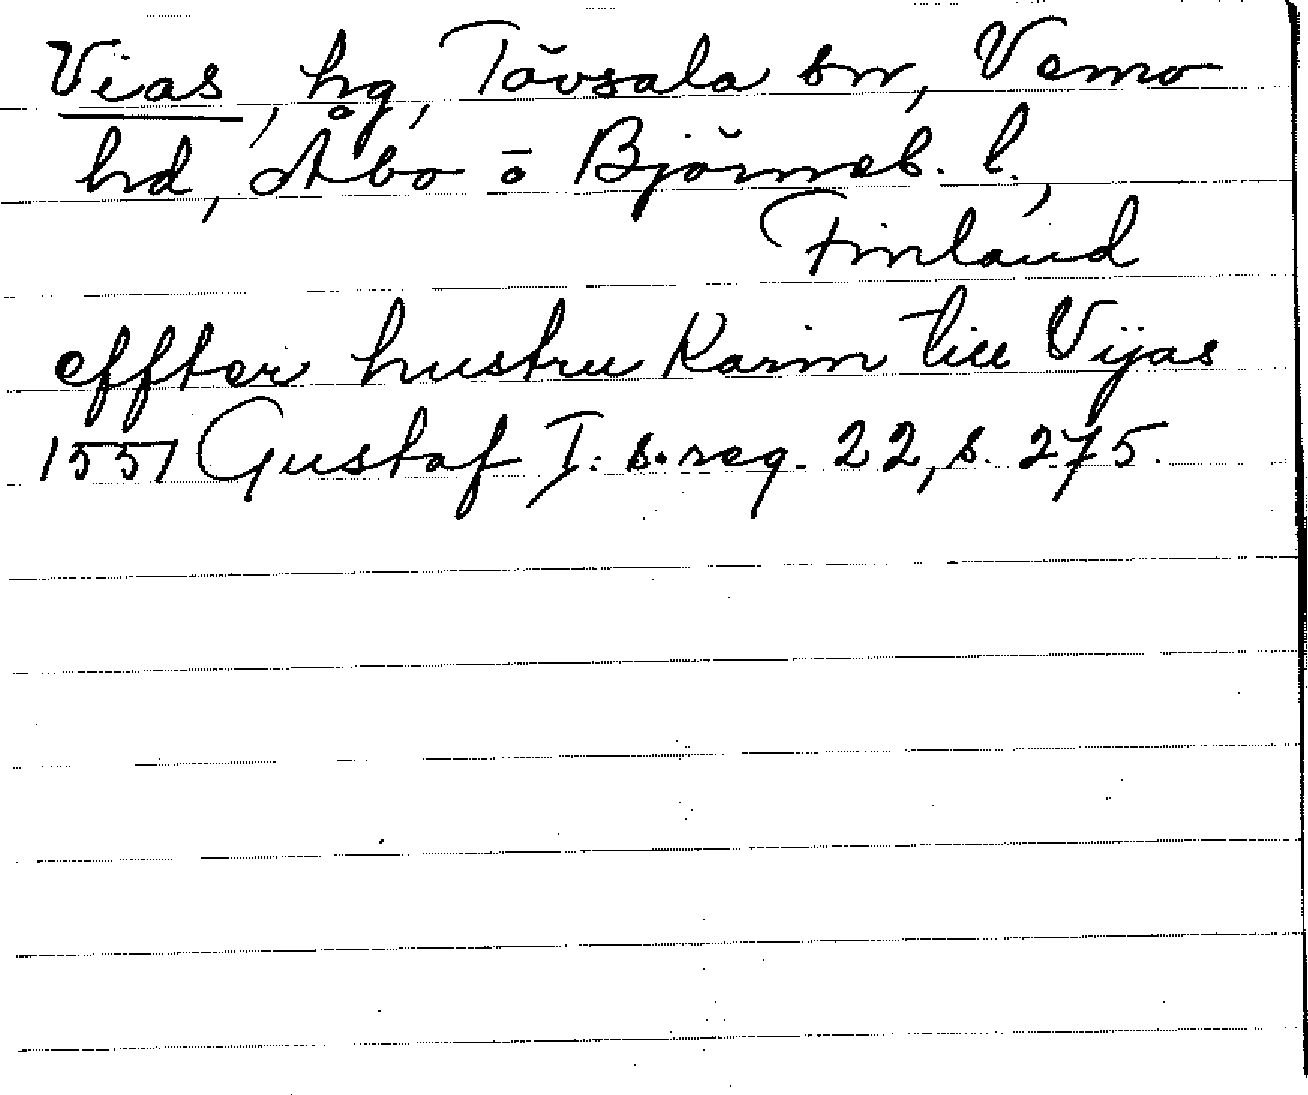 Vias, hg, Tövsala sn, Vemo
hd, Åbo o Björneb. l.,
Finland
effter hustru Karin till Vijas
1551 Gustaf I: s. reg. 22, s. 275.